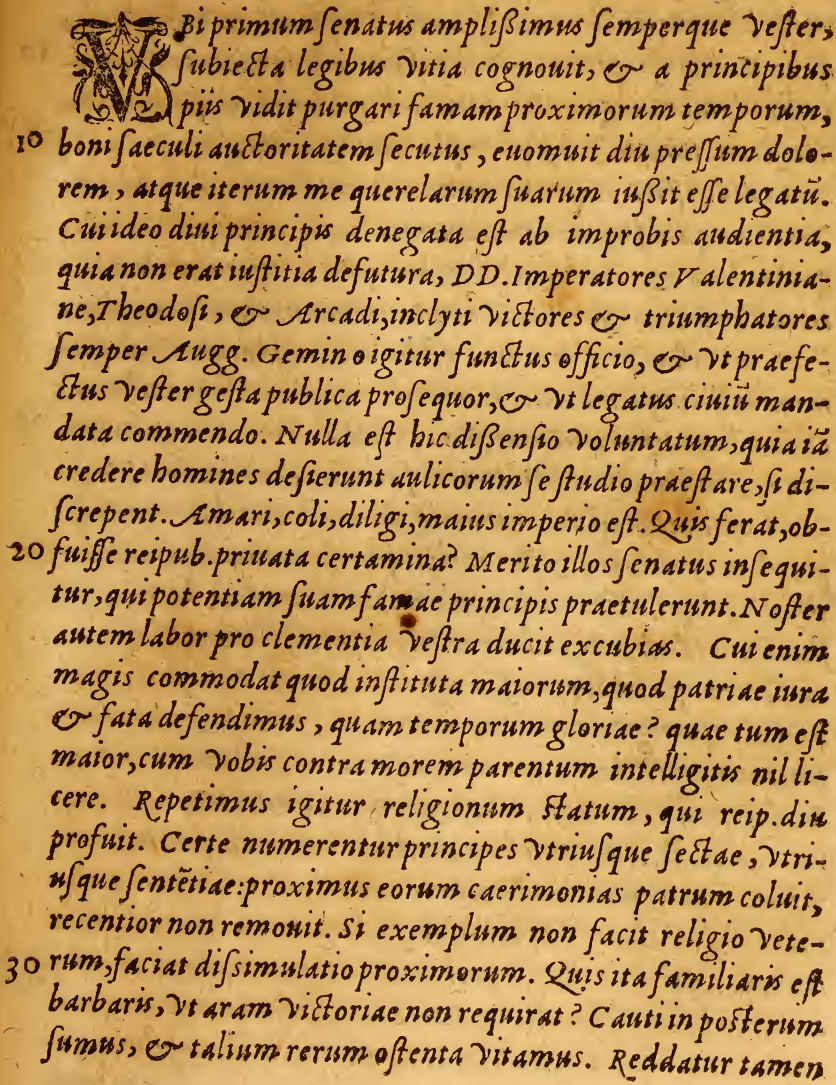 VBi primum senatus amplißimus semperque vester,
subiecta legibus vitia cognouit, & a principibus
piis vidit purgari famam proximorum temporum,
10 boni saeculi auctoritatem secutus, euomuit diu pressum dolo-
rem, atque iterum me querelarum suarum iußit esse legatū.
Cui ideo diui principis denegata est ab improbis audientia,
quia non erat iustitia defutura, DD. Imperatores Valentinia-
ne, Theodosi, & Arcadi, inclyti victores & triumphatores
semper Augg. Gemino igitur functus officio, & vt praefe-
ctus vester gesta publica prosequor, & vt legatus ciuiū man-
data commendo. Nulla est hic dißensio voluntatum, quia iā
credere homines desierunt aulicorum se studio praestare, si di-
screpent. Amari, coli, diligi, maius imperio est. Quis ferat, ob-
20 fuisse reipub. priuata certamina? Merito illos senatus insequi-
tur, qui potentiam suam famae principis praetulerunt. Noster
autem labor pro clementia vestra ducit excubias. Cui enim
magis commodat quod instituta maiorum, quod patriae iura
& fata defendimus, quam temporum gloriae? quae tum est
maior, cum vobis contra morem parentum intelligitis nil li-
cere. Repetimus igitur religionum statum, qui reip. diu
profuit. Certe numerentur principes vtriusque sectae, vtri-
usque sentētiae: proximus eorum caerimonias patrum coluit,
recentior non remouit. Si exemplum non facit religio vete-
30 rum, faciat dissimulatio proximorum. Quis ita familiaris est
barbaris, vt aram victoriae non requirat? Cauti in posterum
sumus, & talium rerum ostenta vitamus. Reddatur tamen